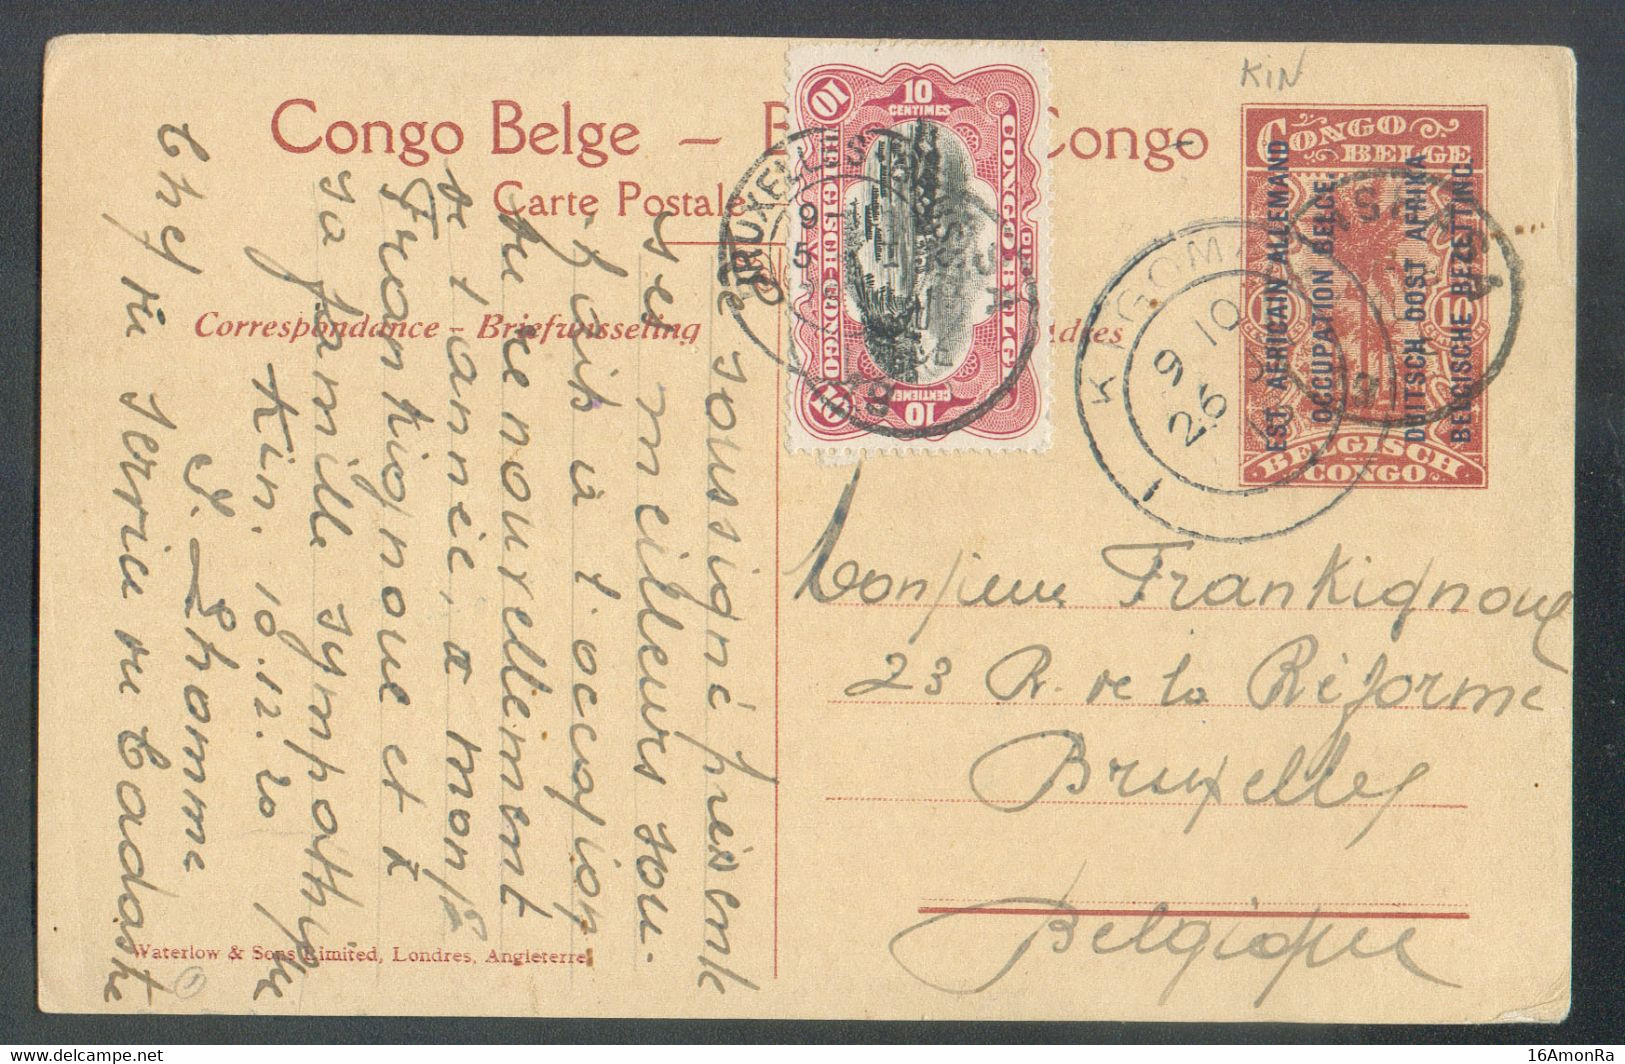 KIN
Congo Belge – B Congo
Carte Postale
Correspondance – Briefwisseling
Adres
CONGO BELGE
EST AFRICAIN ALLEMAND
OCCUPATION BELGE.
DUITSCH OOST AFRIKA
BELGISCHE BEZETTING.
BELGISCH CONGO
10 CENTIMES
CONGO BELGE
BELGISCH CONGO
10 CENTIEMEN
BRUXELLES
KIGOMA
9 10
26
1
Le soussigné présente
ses meilleurs sou-
haits à l'occasion
du renouvellement
de l'année, à Monsr
Frankignoul et à
sa famille sympathique
Kin. 10.12.20
J. Lhomme
Chef du service du Cadastre
Monsieur Frankignoul
23 R. de la Réforme
Bruxelles
Belgique
Waterlow & Sons Limited, Londres, Angleterre
delcampe.net
16AmonRa